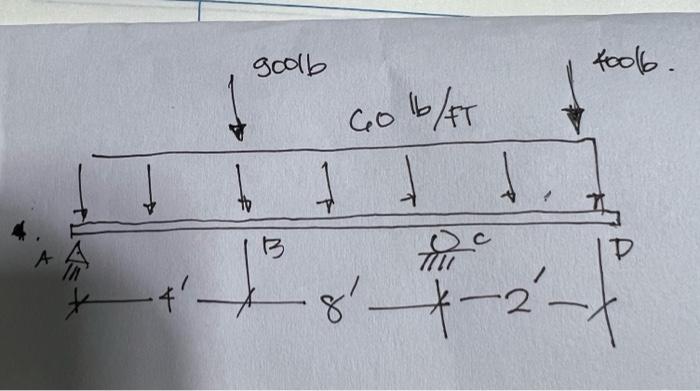 900lb
400lb.
60 lb/FT
A
B
C
D
4'
8'
2'